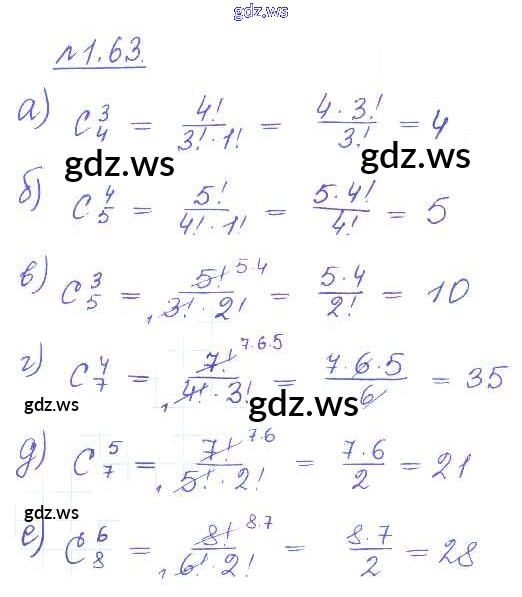 gdz.ws
№1.63.
а) C₄³ = 4!/(3!·1!) = (4·3!)/3! = 4
gdz.ws gdz.ws
б) C₅⁴ = 5!/(4!·1!) = (5·4!)/4! = 5
в) C₅³ = 5! 5·4/(1 3!·2!) = (5·4)/2! = 10
г) C₇⁴ = 7! 7·6·5/(1 4!·3!) = (7·6·5)/6 = 35
gdz.ws gdz.ws
д) C₇⁵ = 7! 7·6/(1 5!·2!) = (7·6)/2 = 21
gdz.ws
е) C₈⁶ = 8! 8·7/(1 6!·2!) = (8·7)/2 = 28